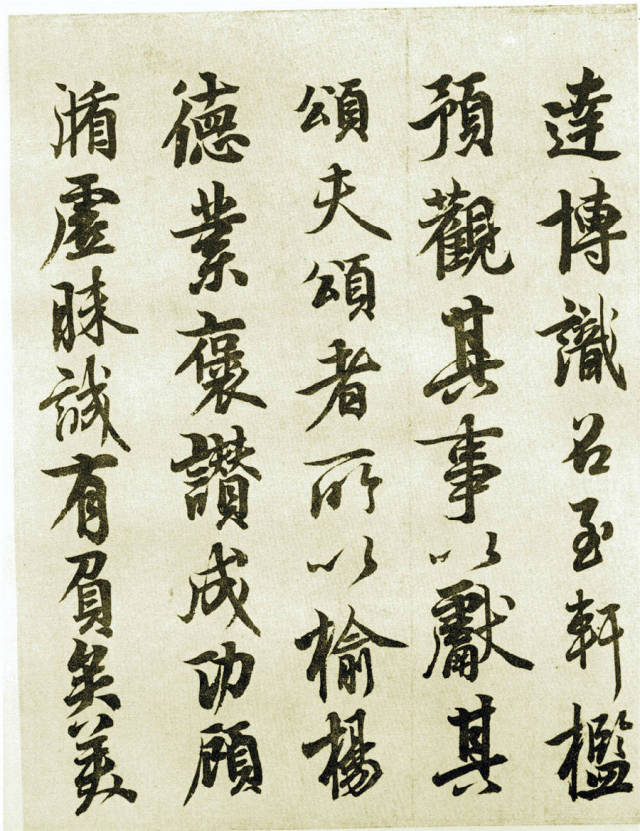 達博識召至軒檻
預觀其事以獻其
頌夫頌者所以榆楊
德業褒讃成功顧
循虛昧誠有負矣美